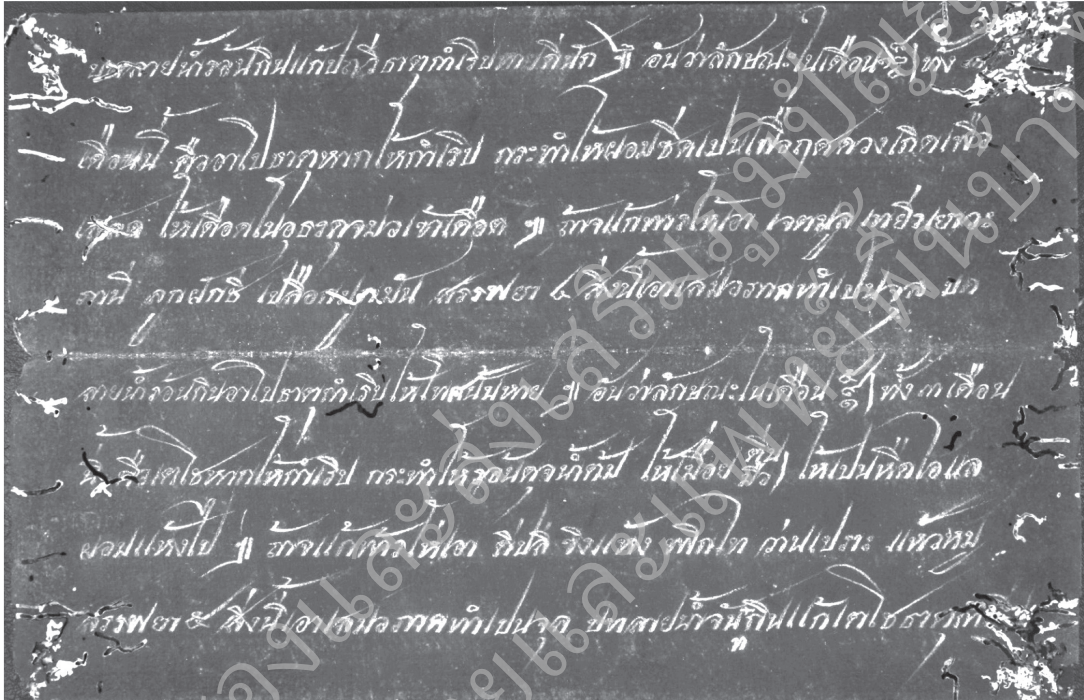 บดลายน้ำร้อนกินแก้ปถวีธาตุกำเริบตามกำนัก ๚ อันว่าลักษณะในเดือน ทั้ง ๓
เดือนนี้ คืออาโปธาตุหากให้กำเริบ กระทำให้ผอมซีดเปนเพื่อฤศดวงเกิดเพื่อ
ให้เดือดในอุธรดุจม่วเข้าเดือด ๚ ถ้าจะแก้ท่านให้เอา เจตมูล เทียวเยาวะ
ภานี ลูกผักชี เปลือกมูกมัน สรรพยา ๔ สิ่งนี้เอาเสมอภาคทำเปนจุล บด
ลายน้ำร้อนกินอาโปธาตุกำเริบให้โทศนั้นหาย ๚ อันว่าลักษณะในเดือน ทั้ง ๓ เดือน
นี้ คือเตโชหากให้กำเริบ กระทำให้ร้อนดุจน้ำต้ม ให้เมื่อย ตีน มือ ให้เปนหืดไอแล
ผอมแห้งไป ๚ ถ้าจะแก้ท่านให้เอา ดีปลี ขิงแห้ง พริกไท ว่านเปราะ แห้วหมู
สรรพยา ๕ สิ่งนี้เอาเสมอภาคทำเปนจุล บดลายน้ำขันฑกินแก้เตโชธาตุ